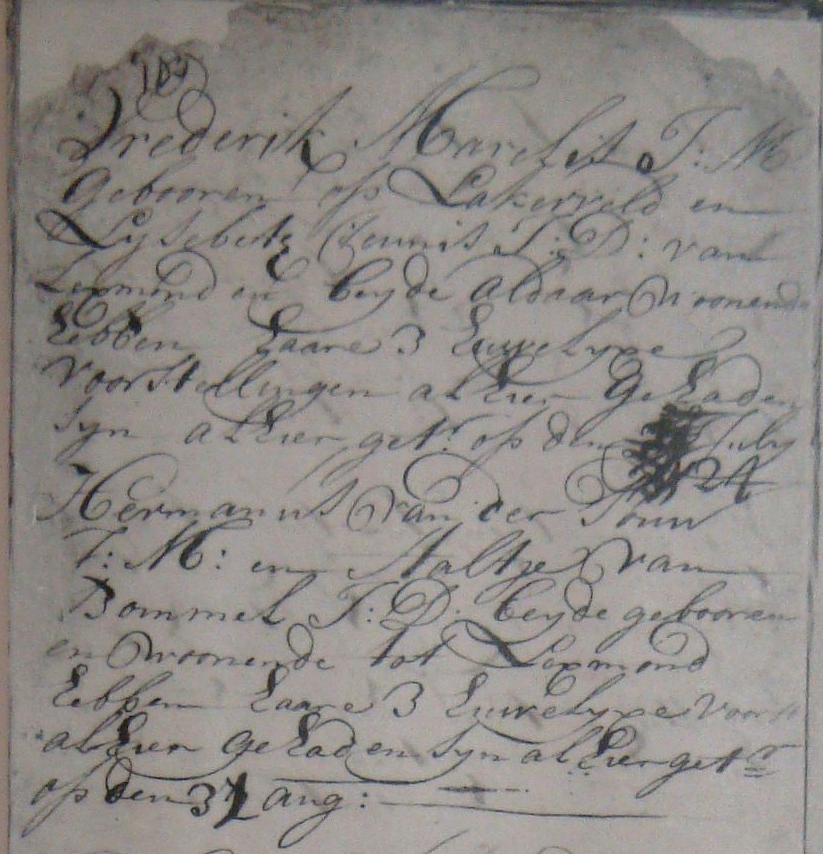 Frederik Marcelis J: M
Gebooren op Lakerveld en
Lysebeth Teunis J: D: van
Lexmond en beyde aldaar woonende
hebben haare 3 huwelyxe
voorstellingen alhier gehaden
syn alhier getr. op den July
24
Hermanus van der Touw
J: M: en Aaltje van
Bommel J: D. beyde gebooren
en woonende tot Lexmond
hebben haare 3 huwelyxe voorst
alhier gehaden syn alhier getr
op den 31 aug: